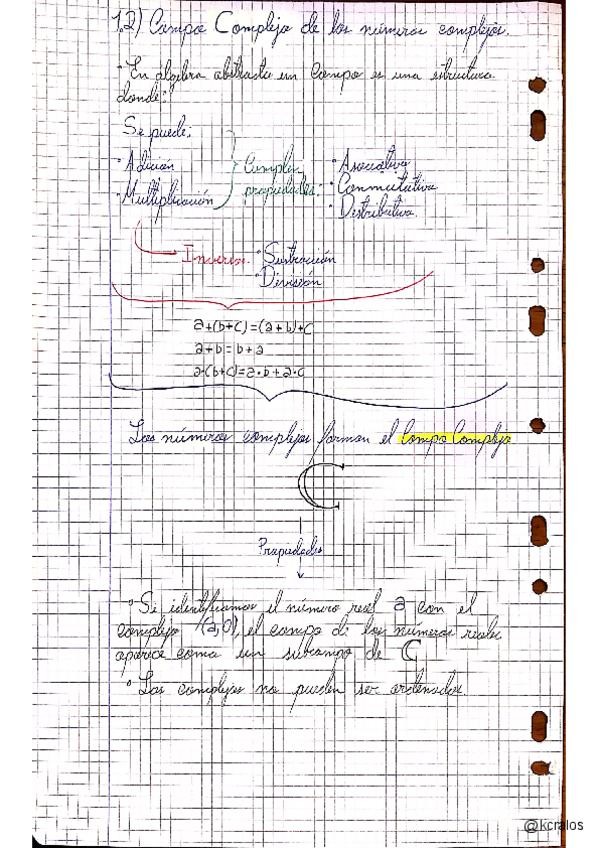 1.2) Campo Complejo de los números complejos.
• En álgebra abstracta un Campo es una estructura
donde:
Se puede:
• Adición
• Multiplicación
Cumplen
propiedades:
• Asociativa
• Conmutativa
• Distributiva.
Inversa: • Sustracción
• División
a+(b+c)=(a+b)+c
a+b=b+a
a·(b+c)=a·b+a·c
Los números complejos forman el Campo Complejo
ℂ
Propiedades
• Si identificamos el número real a con el
complejo (a,0), el campo de los números reales
aparece como un subcampo de C
• Los complejos no pueden ser ordenados.
@kcralos